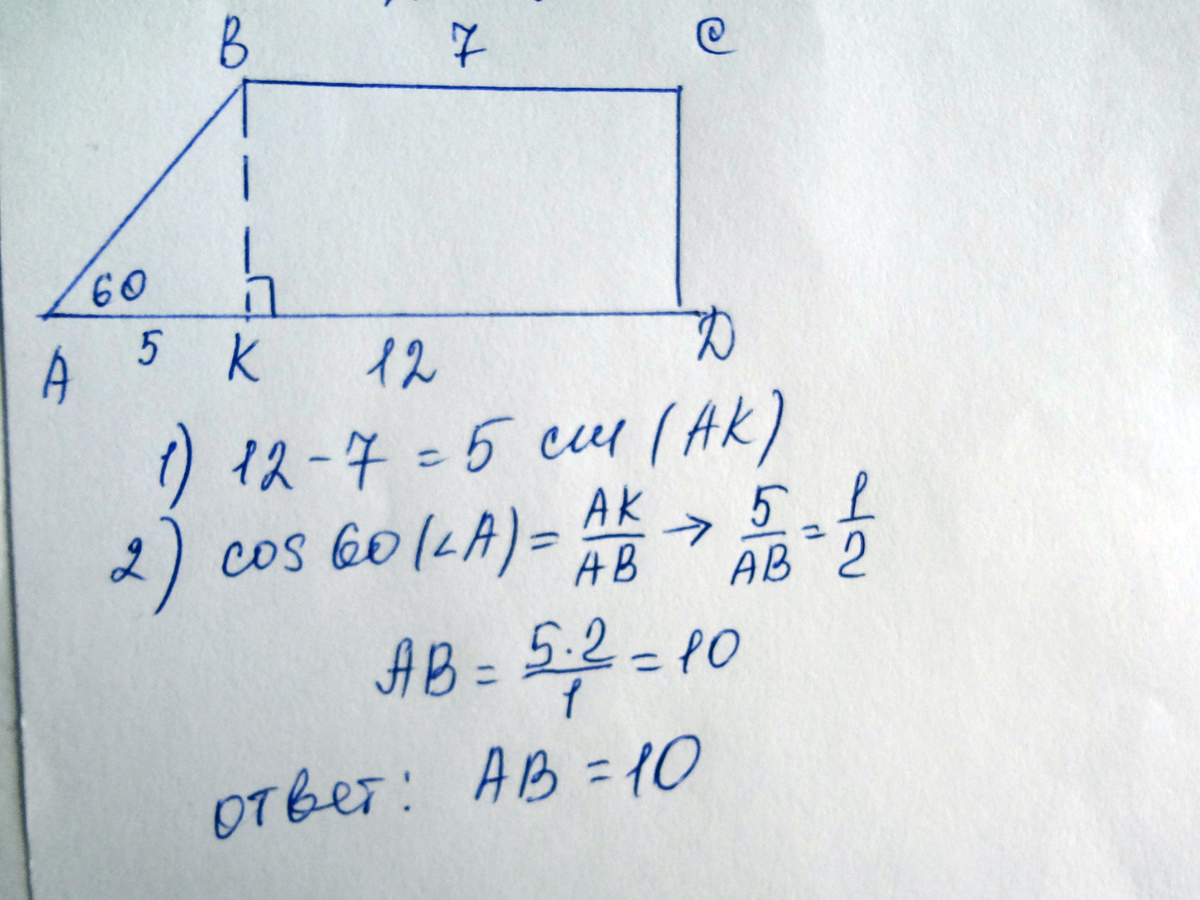 B 7 C
60
A 5 K 12 D
1) 12 - 7 = 5 см (AK)
2) cos 60 (∠A) = AK/AB → 5/AB = 1/2
AB = 5·2/1 = 10
ответ: AB = 10